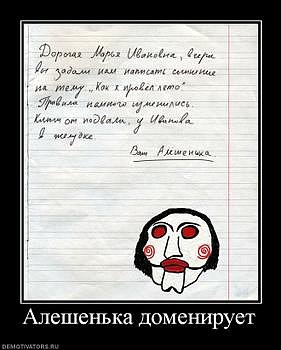 Дорогая Марья Ивановна, вчера
вы задали нам написать сочинение
на тему „Как я провел лето"
Правила немного изменились.
Ключ от подвала, у Иванова
в желудке.
Ваш Алешенька.
Алешенька доменирует
DEMOTIVATORS.RU